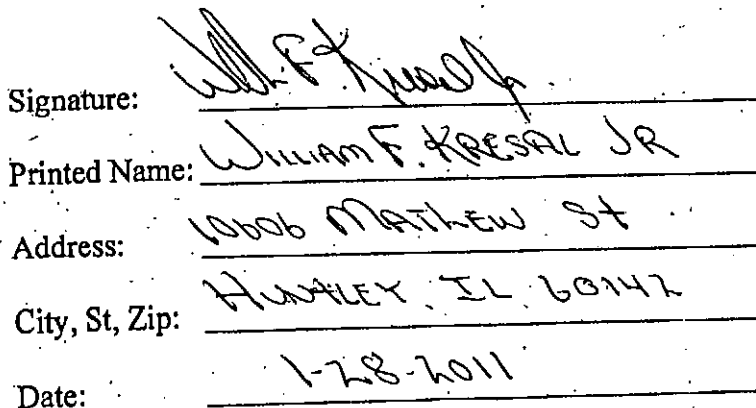 Signature: Will F. Kresal Jr.
Printed Name: WILLIAM F. KRESAL JR
Address: 10606 MATHEW St
City, St, Zip: HUNTLEY, IL 60142
Date: 1-28-2011